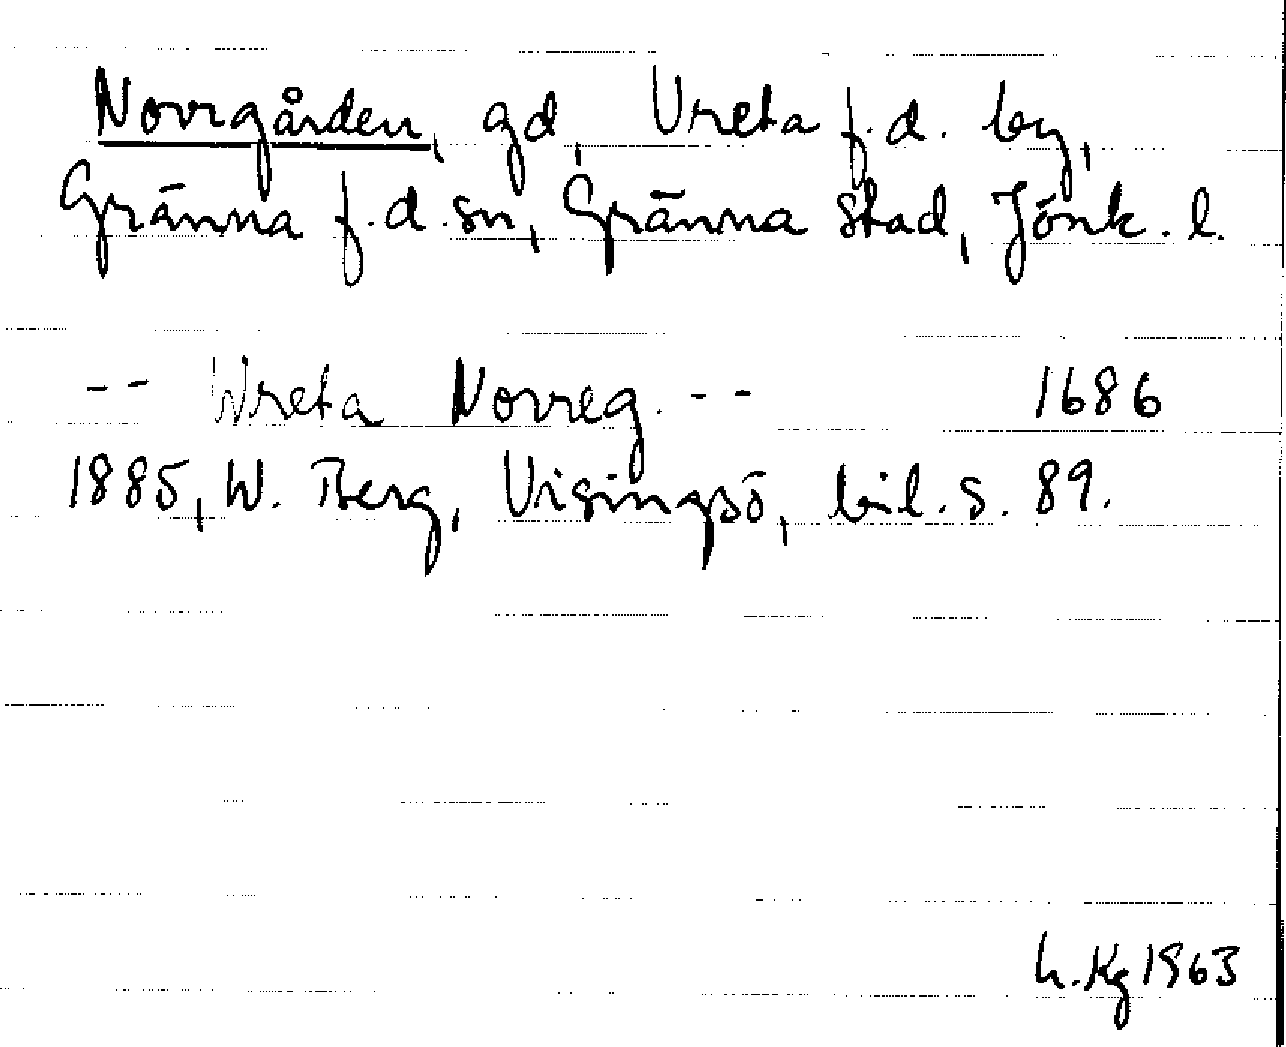 Norrgården, gd, Vreta f.d. by,
Gränna f.d. sn, Gränna stad, Jönk. l.
-- Wreta Norreg. -- 1686
1885, W. Berg, Visingsö, bil. s. 89.
h. Kg 1963